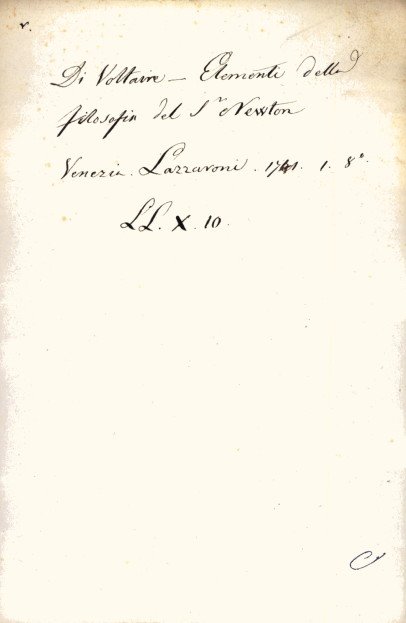 v.
Di Voltaire — Elementi della
filosofia del S.r Newton
Venezia. Lazzaroni. 1741. 1. 8°.
LL. X. 10.